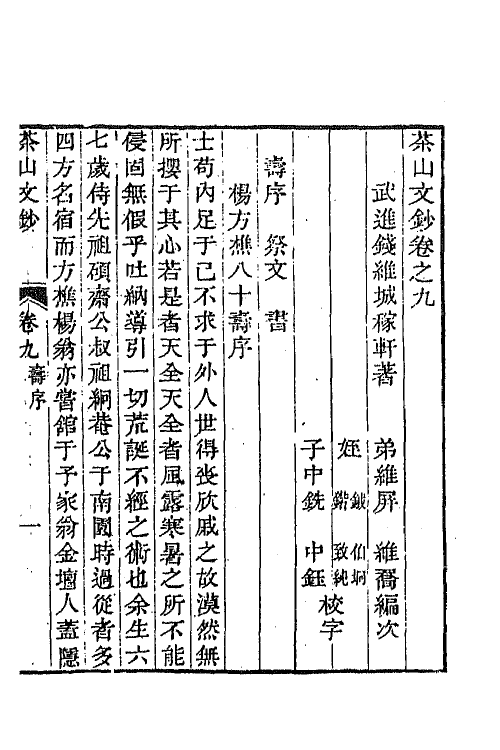 茶山文鈔卷之九
武進錢維城稼軒著　弟維屏　維喬編次
姪　鈸　伯坰　鍇　致純　校字
子中銑　中鈺
壽序　祭文　書
楊方樵八十壽序
士苟內足于己不求于外人世得喪欣戚之故漠然無
所攖于其心若是者天全天全者風露寒暑之所不能
侵固無假乎吐納導引一切荒誕不經之術也余生六
七歲侍先祖碩齋公叔祖絅菴公于南園時過從者多
四方名宿而方樵楊翁亦嘗舘于予家翁金壇人蓋隱
茶山文鈔　卷九　壽序　一